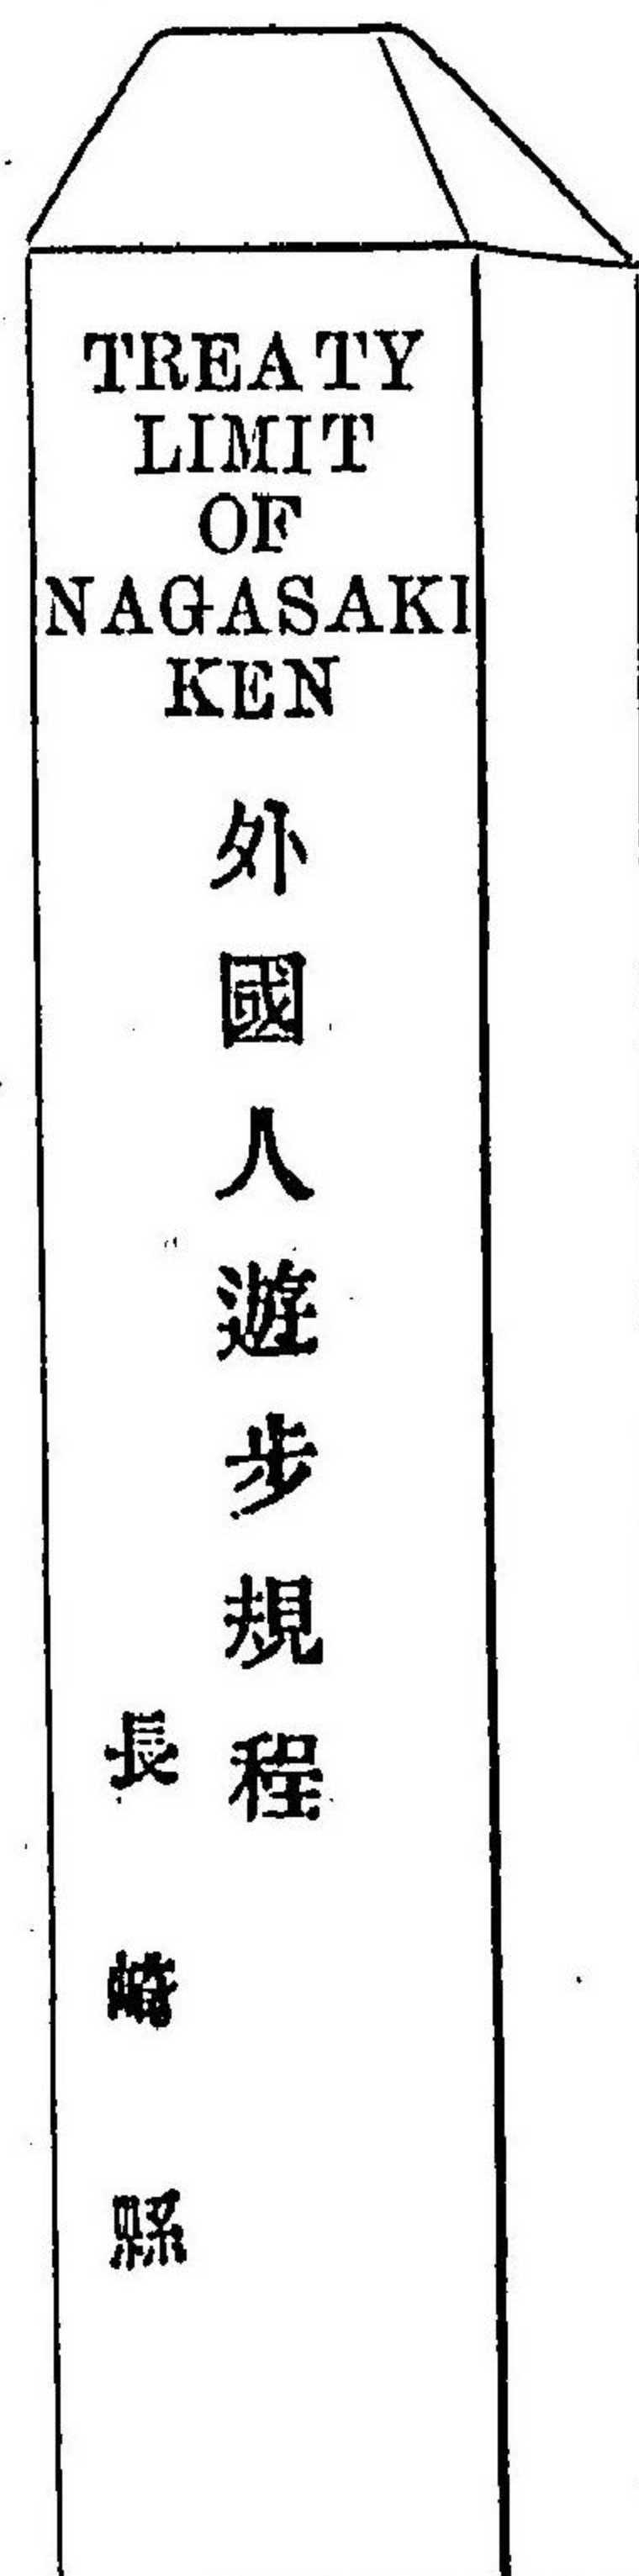 TREATY
LIMIT
OF
NAGASAKI
KEN
外國人遊步規程
長崎縣